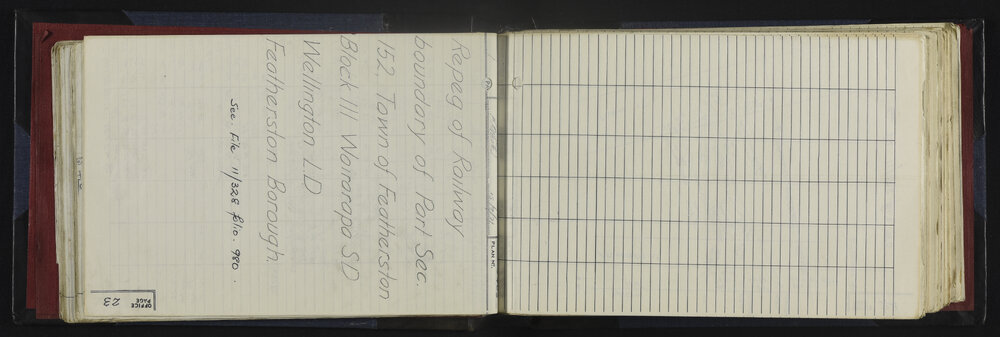 Repeg of Railway
boundary of Part Sec.
152, Town of Featherston
Block III Wairarapa SD
Wellington LD
Featherston Borough.
See. File 11/328 folio. 980.
OFFICE
PAGE
23
PLAN No.